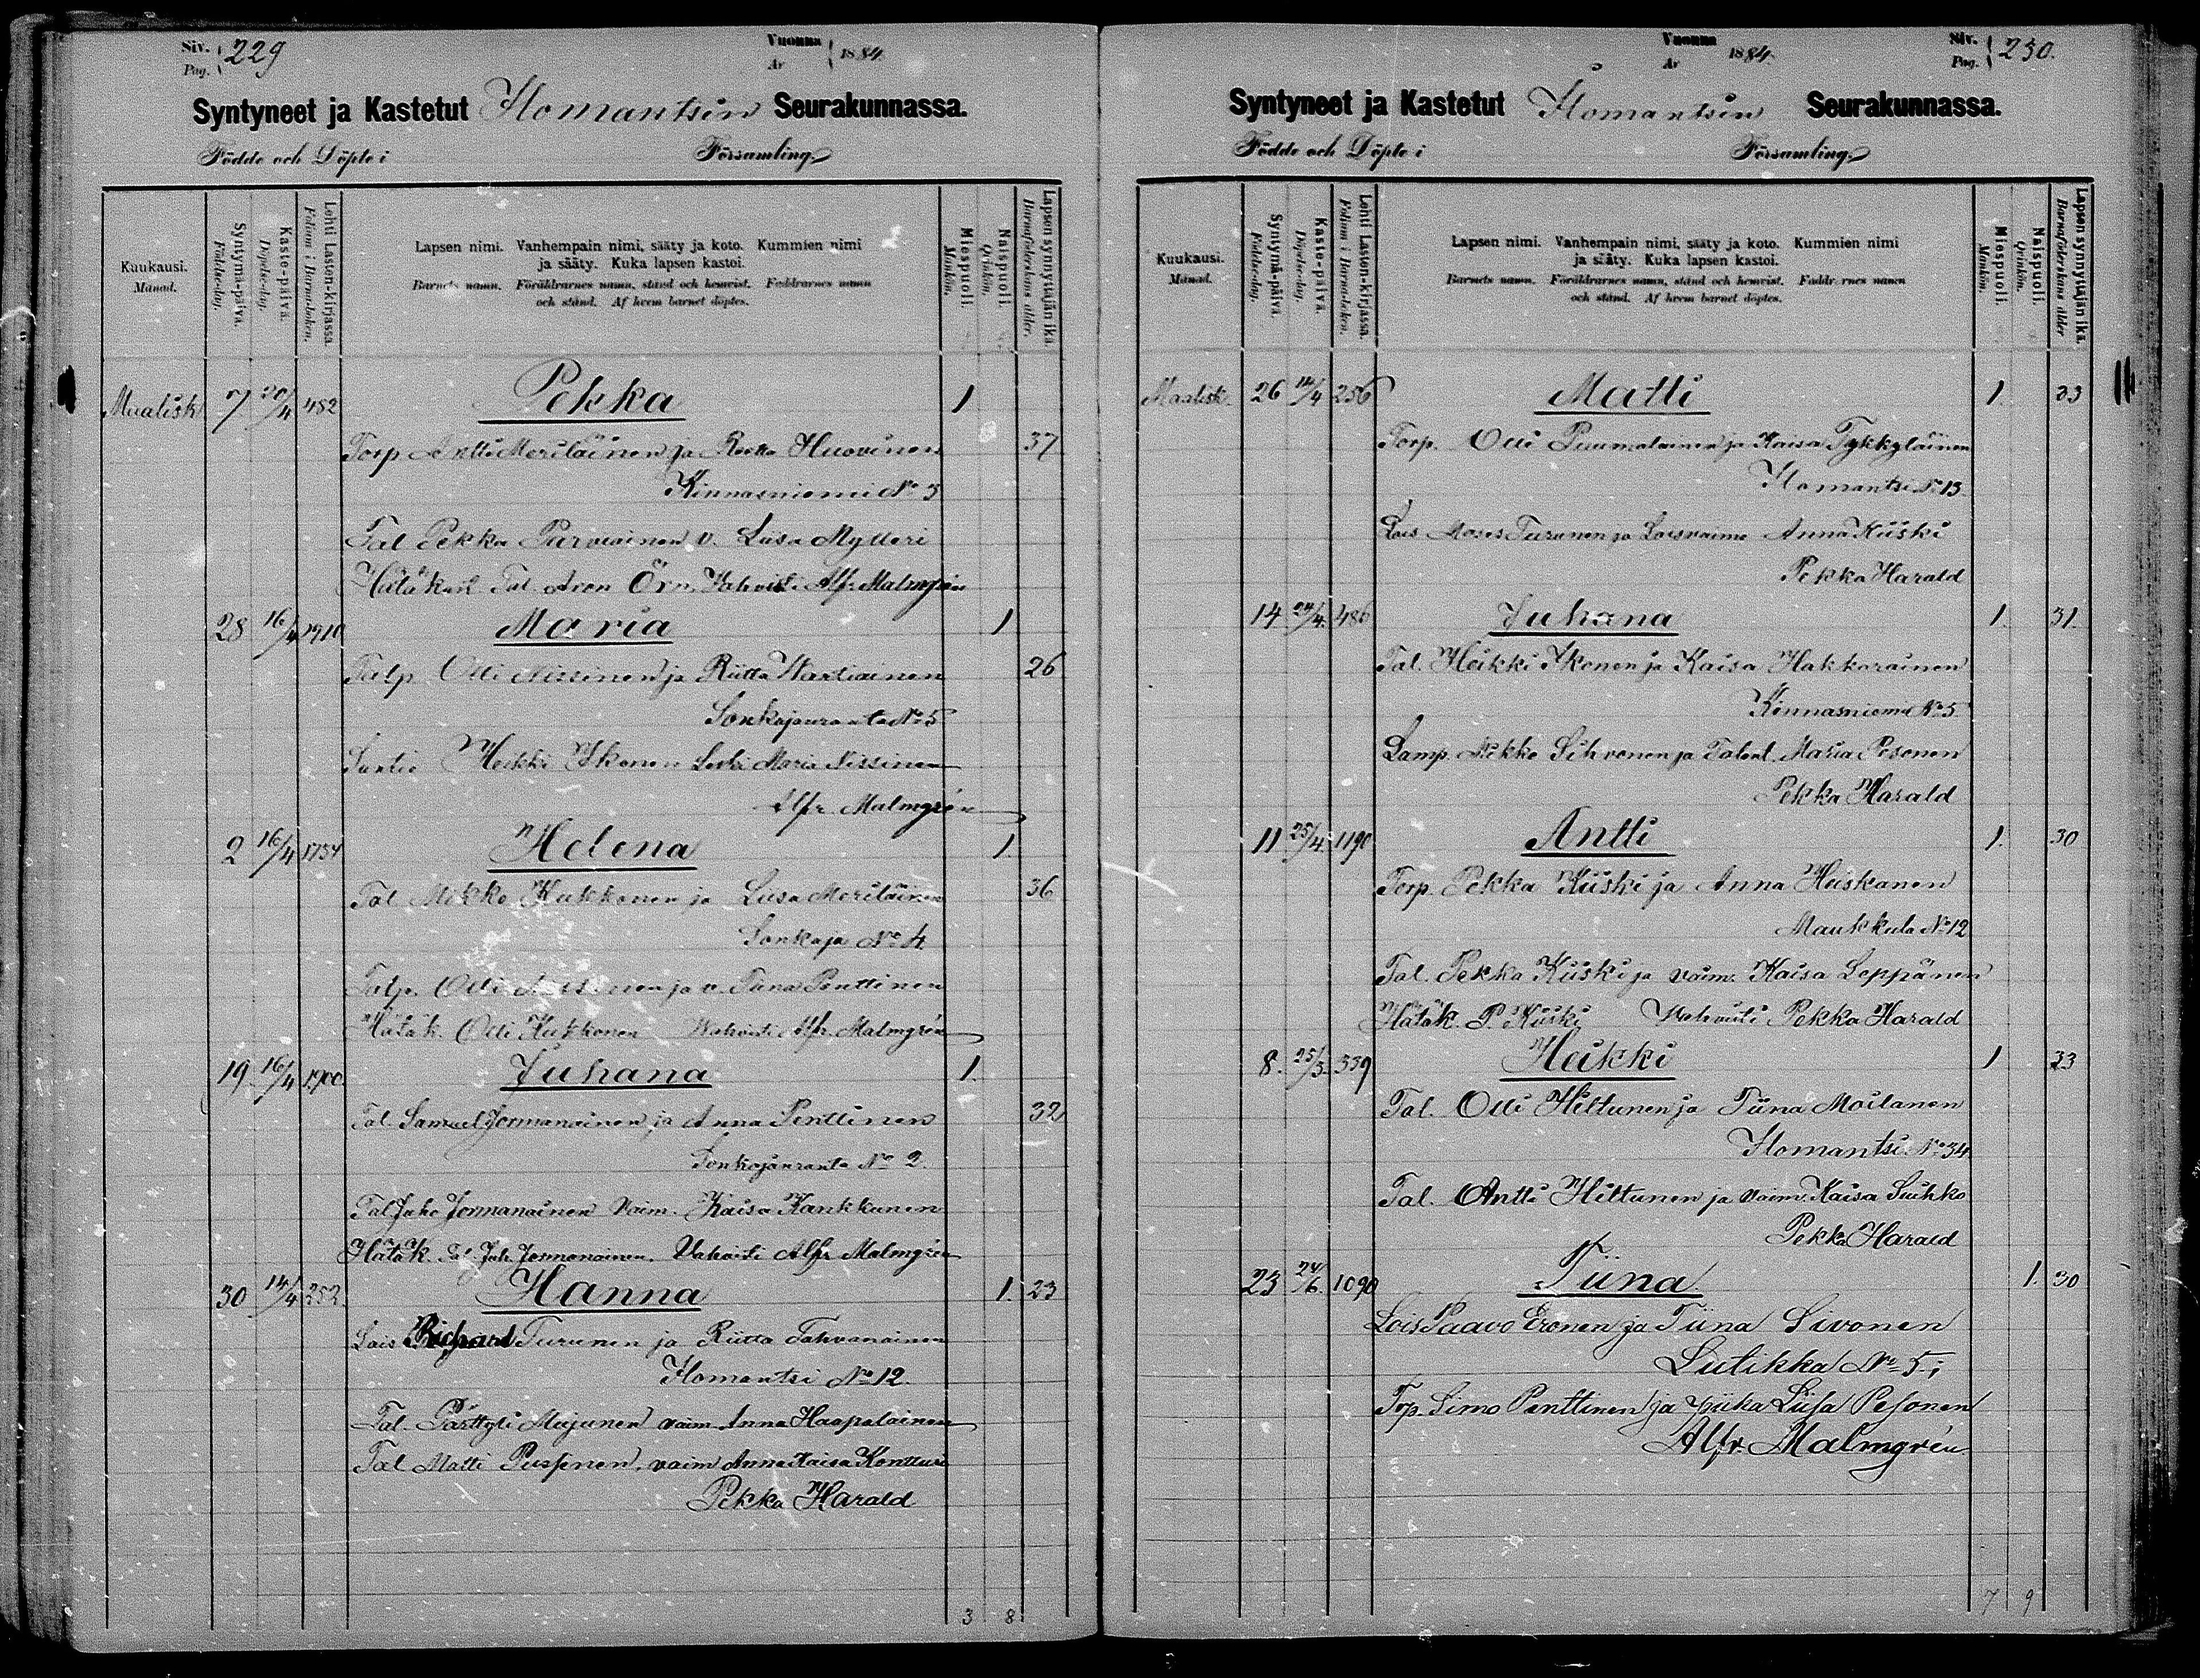 Siv. Pag. 229
Vuonna År 1884.
Syntyneet ja Kastetut Ilomantsin Seurakunnassa.
Födde och Döpte i Församling
Kuukausi. Månad.
Syntymä-päivä. Födelse-dag.
Kaste-päivä. Döpelse-dag.
Lehti Lasten-kirjassa. Folium i Barnaboken.
Lapsen nimi. Vanhempain nimi, sääty ja koto. Kummien nimi
ja sääty. Kuka lapsen kastoi.
Barnets namn. Föräldrarnes namn, stånd och hemvist. Faddrarnes namn
och stånd. Af hvem barnet döptes.
Miespuoli. Mankön.
Naispuoli. Qvinkön.
Lapsen synnyttäjän ikä. Barnaföderskans ålder.
Maalisk 7 20/4 452 Pekka 1
Torp Antti Meriläinen ja Reeta Huovinen 37
Kinnasniemi No 3
Tal Pekka Parviainen v. Liisa Mylleri
Hätäkast. Tal. Aron Örn Vahvisti Alfr Malmgrén
28 16/4 1910 Maria 1
Talp Olli Nissinen ja Riitta Wartiainen 26
Sonkajanranta No 5
Suntio Heikki Ikonen Leski Maria Nissinen
Alfr. Malmgrén
2 16/4 1754 Helena 1.
Tal Mikko Kukkonen ja Liisa Meriläinen 36
Sonkaja No 4
Talp. Olli ja v. Tiina Penttinen
Hätäk. Olli Kukkonen Wahvisti Alfr. Malmgrén
19 16/4 1900 Juhana 1.
Tal. Samuel Jormanainen ja Anna Penttinen 32
Sonkajanranta No 2.
Tal Juho Jormanainen Vaim. Kaisa Kankkunen
Hätäk. Tal Juh. Jormanainen. Vahvisti Alfr Malmgrén
30 14/4 252 Hanna 1. 23
Lois Richard Turunen ja Riitta Tahvanainen
Ilomantsi No 12.
Tal. Pärttyli Mujunen vaim Anna Haapalainen
Tal Matti Pussinen, vaim Anna Kaisa Kontturi
Pekka Harald
3 8
Vuonna År 1884.
Siv. Pag. 230.
Syntyneet ja Kastetut Ilomantsin Seurakunnassa.
Födde och Döpte i Församling
Kuukausi. Månad.
Syntymä-päivä. Födelse-dag.
Kaste-päivä. Döpelse-dag.
Lehti Lasten-kirjassa. Folium i Barna-boken.
Lapsen nimi. Vanhempain nimi, sääty ja koto. Kummien nimi
ja sääty. Kuka lapsen kastoi.
Barnets namn. Föräldrarnes namn, stånd och hemvist. Faddrarnes namn
och stånd. Af hvem barnet döptes.
Miespuoli. Mankön.
Naispuoli. Qvinkön.
Lapsen synnyttäjän ikä. Barnaföderskans ålder
Maalisk. 26 14/4 256 Matti 1. 33
Torp. Olli Puumalainen ja Kaisa Tykkyläinen
Ilomantsi No 13
Lois Moses Turunen ja Loisvaimo Anna Kiiski
Pekka Harald
14 24/4. 486 Juhana 1. 31.
Tal. Heikki Ikonen ja Kaisa Hakkarainen
Kinnasniemi No 5
Lamp. Mikko Sihvonen ja Talent. Maria Pesonen
Pekka Harald
11 25/4. 1190 Antti 1. 30
Torp. Pekka Kiiski ja Anna Heiskanen
Maukkula No 12
Tal. Pekka Kiiski ja vaim. Kaisa Leppänen
Hätäk. P. Kiiski Vahvisti Pekka Harald
8. 25/3. 339 Heikki 1 33
Tal. Olli Hiltunen ja Tiina Moilanen
Ilomantsi No 34
Tal. Antti Hiltunen ja vaim. Kaisa Suihko
Pekka Harald
23 24/6. 1090 Tiina 1. 30
Lois Paavo Eronen ja Tiina Sivonen
Lutikka No 5.;
Torp. Simo Penttinen ja piika Liisa Pesonen
Alfr. Malmgrén
7 9